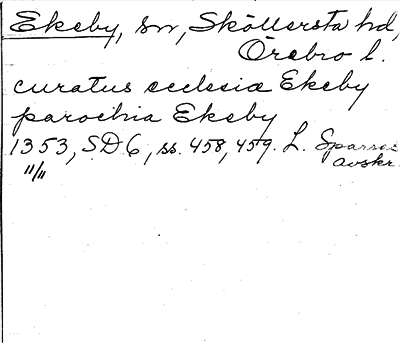 Ekeby, sn, Sköllersta hd,
Örebro l.
curatus ecclesiæ Ekeby
parochia Ekeby
1353, SD 6, ss. 458, 459. L. Sparres
avskr.
11/11